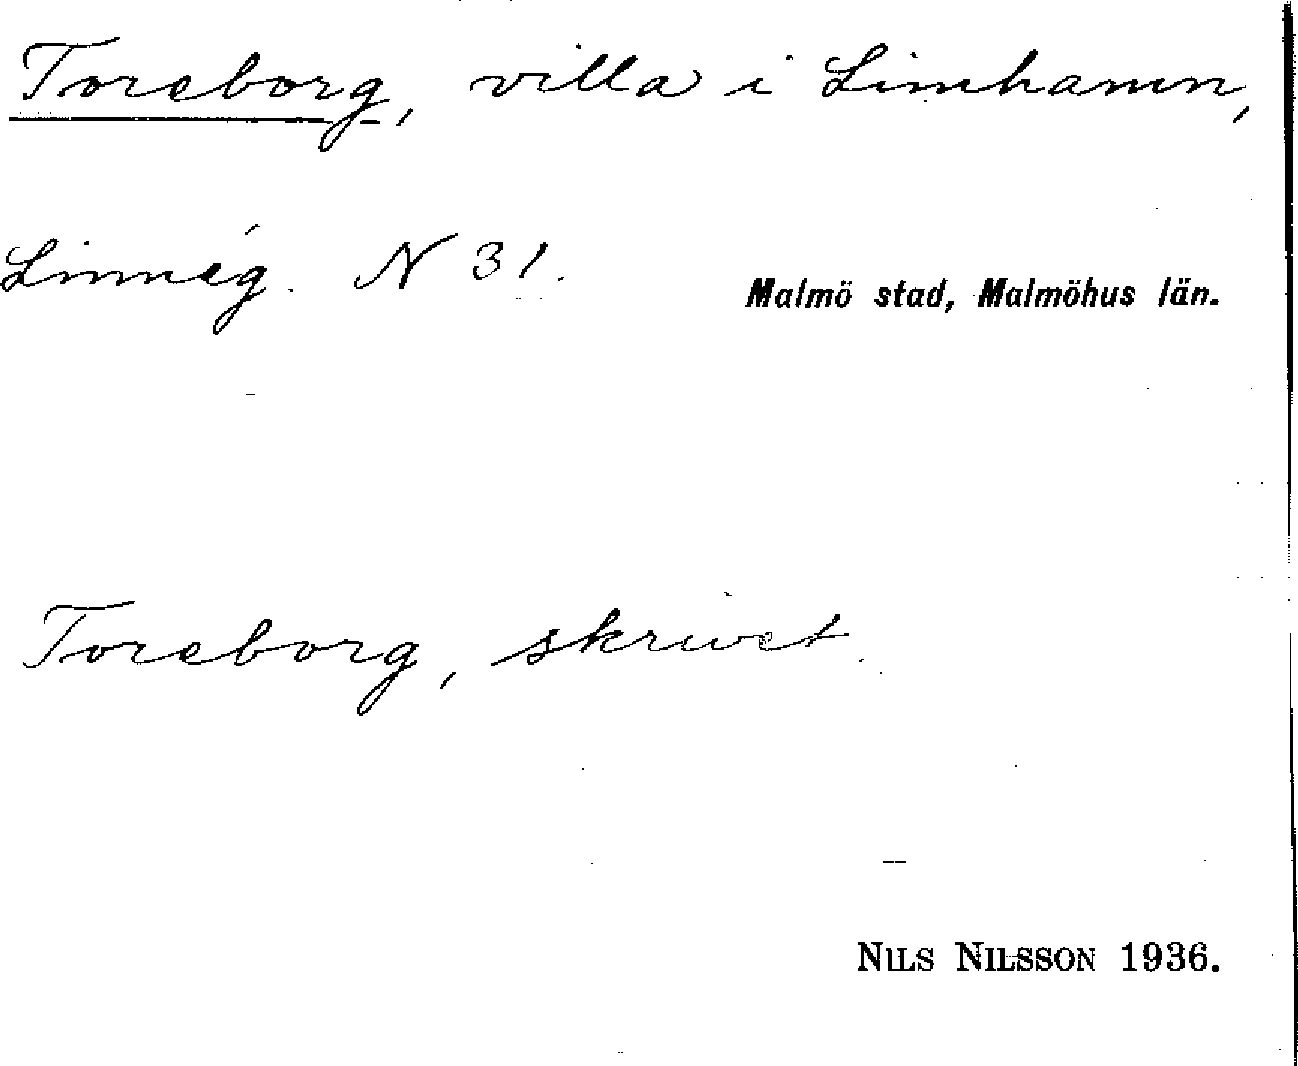 Toreborg, villa i Limhamn,
Linnég. N 31.
Malmö stad, Malmöhus län.
Toreborg, skrivet.
NILS NILSSON 1936.